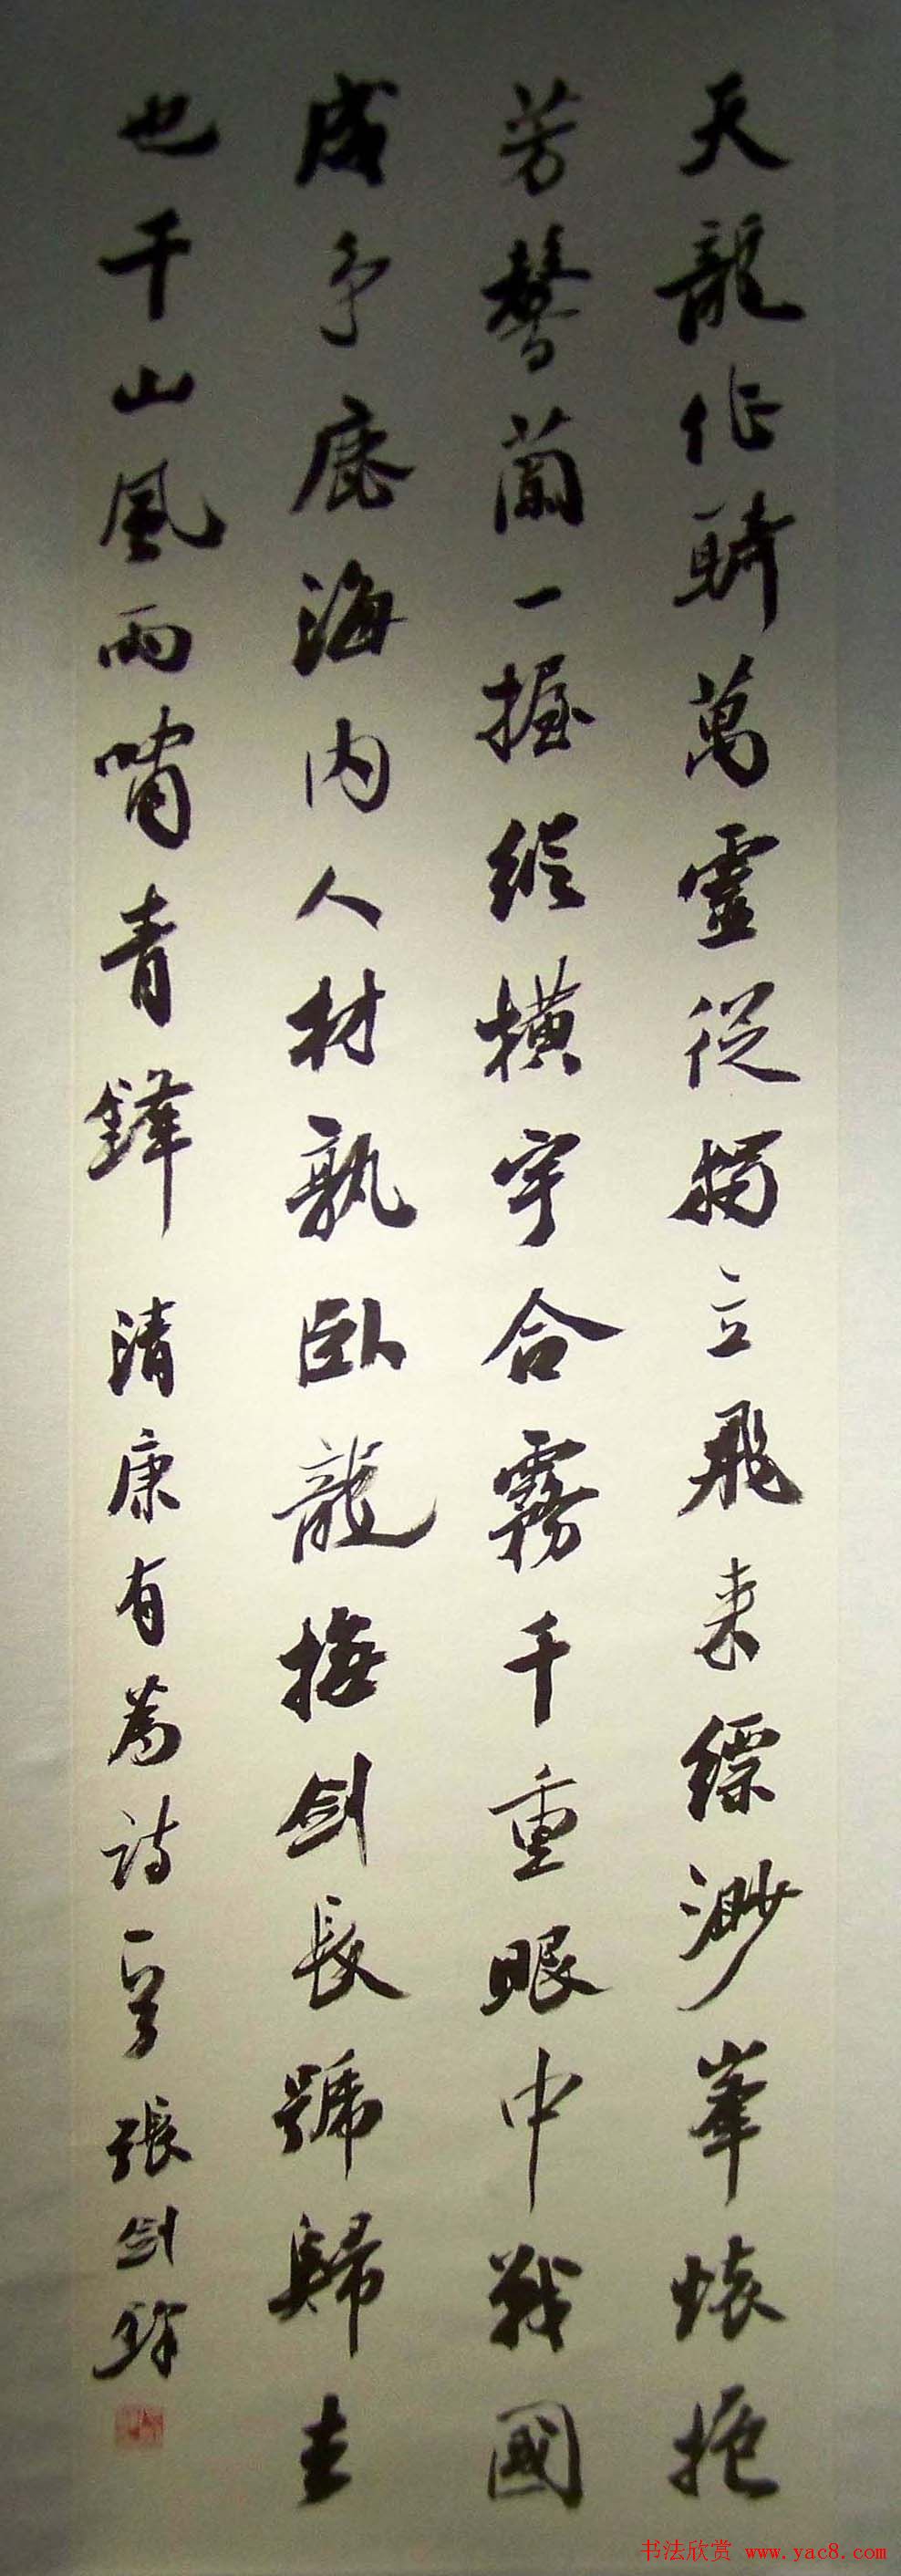 天龍作騎萬靈從獨立飛来縹渺峯懷抱
芳馨蘭一握縱橫宇合霧千重眼中戰國
成争鹿海内人材孰臥龍撫剑長號歸去
也千山風雨嘯青鋒 清康有為詩一首 張剑
书法欣赏 www.yac8.com